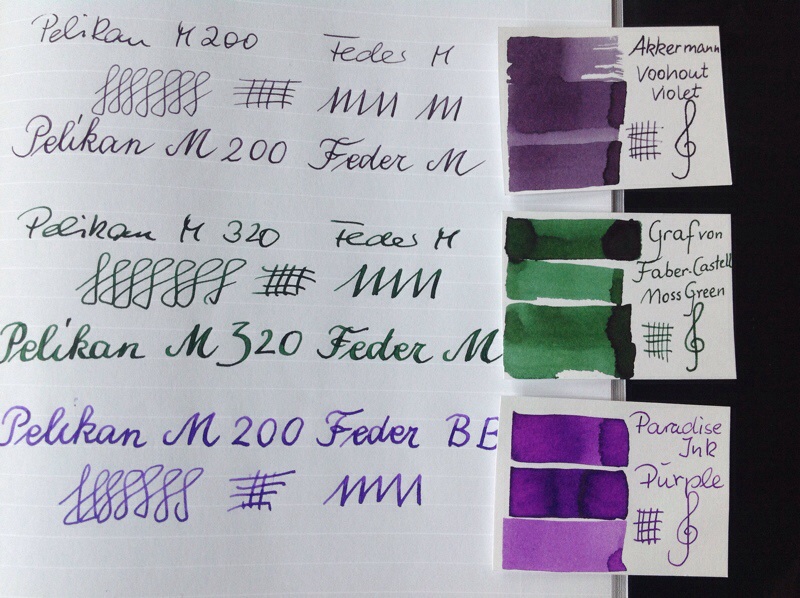 Pelikan M 200 Feder M
Pelikan M 200 Feder M
Akkermann
Voohout
Violet
Pelikan M 320 Feder M
Pelikan M 320 Feder M
Graf von
Faber-Castell
Moss Green
Pelikan M 200 Feder BB
Paradise
Ink
Purple